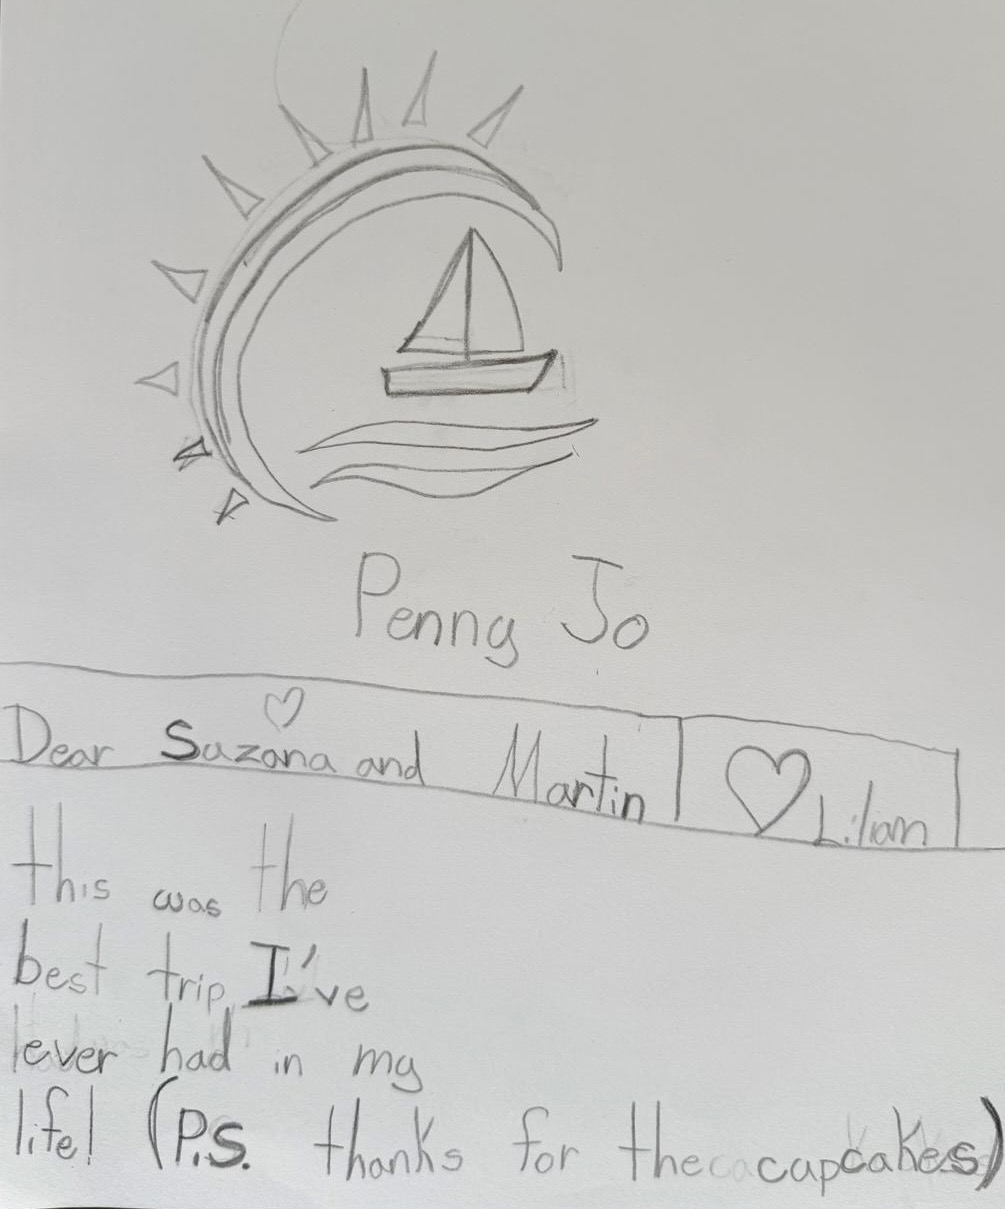 Penny Jo
Dear Suzana and Martin
Lilian
this was the
best trip I've
ever had in my
life! (P.S. thanks for the cupcakes)